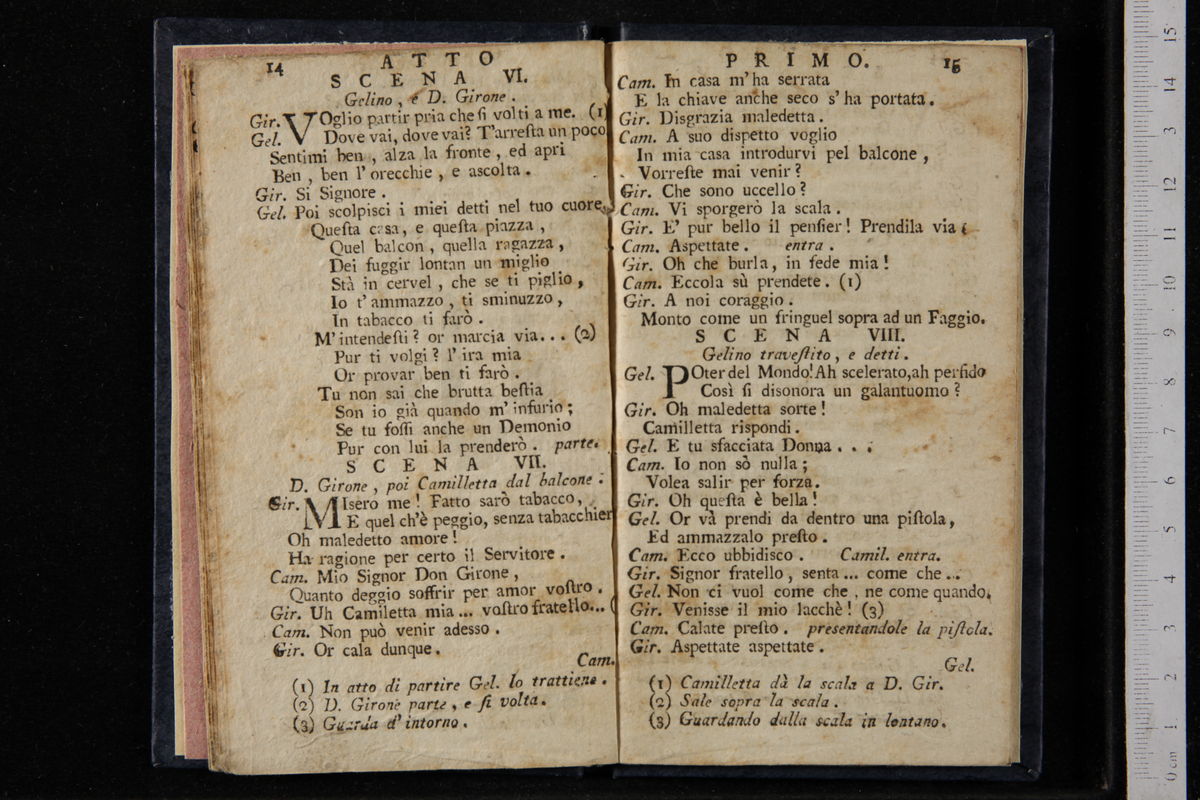 14 ATTO
SCENA VI.
Gelino, e D. Girone.
Gir. VOglio partir pria che ſi volti a me. (1)
Gel. Dove vai, dove vai? T'arreſta un poco
Sentimi ben, alza la fronte, ed apri
Ben, ben l'orecchie, e aſcolta.
Gir. Si Signore.
Gel. Poi scolpisci i miei detti nel tuo cuore,
Queſta casa, e queſta piazza,
Quel balcon, quella ragazza,
Dei fuggir lontan un miglio
Stà in cervel, che se ti piglio,
Io t'ammazzo, ti sminuzzo,
In tabacco ti farò.
M'intendeſti? or marcia via... (2)
Pur ti volgi? l'ira mia
Or provar ben ti farò.
Tu non sai che brutta beſtia
Son io già quando m'infurio;
Se tu foſſi anche un Demonio
Pur con lui la prenderò. parte.
SCENA VII.
D. Girone, poi Camilletta dal balcone.
Gir. MIsero me! Fatto sarò tabacco,
E quel ch'è peggio, senza tabacchier
Oh maledetto amore!
Ha ragione per certo il Servitore.
Cam. Mio Signor Don Girone,
Quanto deggio soffrir per amor voſtro.
Gir. Uh Camiletta mia... voſtro fratello... (
Cam. Non può venir adesso.
Gir. Or cala dunque.
Cam.
(1) In atto di partire Gel. lo trattiene.
(2) D. Girone parte, e ſi volta.
(3) Guarda d'intorno.
PRIMO. 15
Cam. In casa m'ha serrata
E la chiave anche seco s'ha portata.
Gir. Disgrazia maledetta.
Cam. A suo dispetto voglio
In mia casa introdurvi pel balcone,
Vorreſte mai venire?
Gir. Che sono uccello?
Cam. Vi sporgerò la scala.
Gir. E' pur bello il penſier! Prendila via
Cam. Aspettate. entra.
Gir. Oh che burla, in fede mia!
Cam. Eccola sù prendete. (1)
Gir. A noi coraggio.
Monto come un fringuel sopra ad un Faggio.
SCENA VIII.
Gelino traveſtito, e detti.
Gel. POter del Mondo! Ah scelerato, ah perfido
Così ſi disonora un galantuomo?
Gir. Oh maledetta sorte!
Camilletta rispondi.
Gel. E tu sfacciata Donna...
Cam. Io non sò nulla;
Volea salir per forza.
Gir. Oh queſta è bella!
Gel. Or và prendi da dentro una piſtola,
Ed ammazzalo preſto.
Cam. Ecco ubbidisco. Camil. entra.
Gir. Signor fratello, senta... come che...
Gel. Non ci vuol come che, ne come quando,
Gir. Venisse il mio lacchè! (3)
Cam. Calate preſto. presentandole la piſtola.
Gir. Aspettate aspettate.
Gel.
(1) Camilletta dà la scala a D. Gir.
(2) Sale sopra la scala.
(3) Guardando dalla scala in lontano.